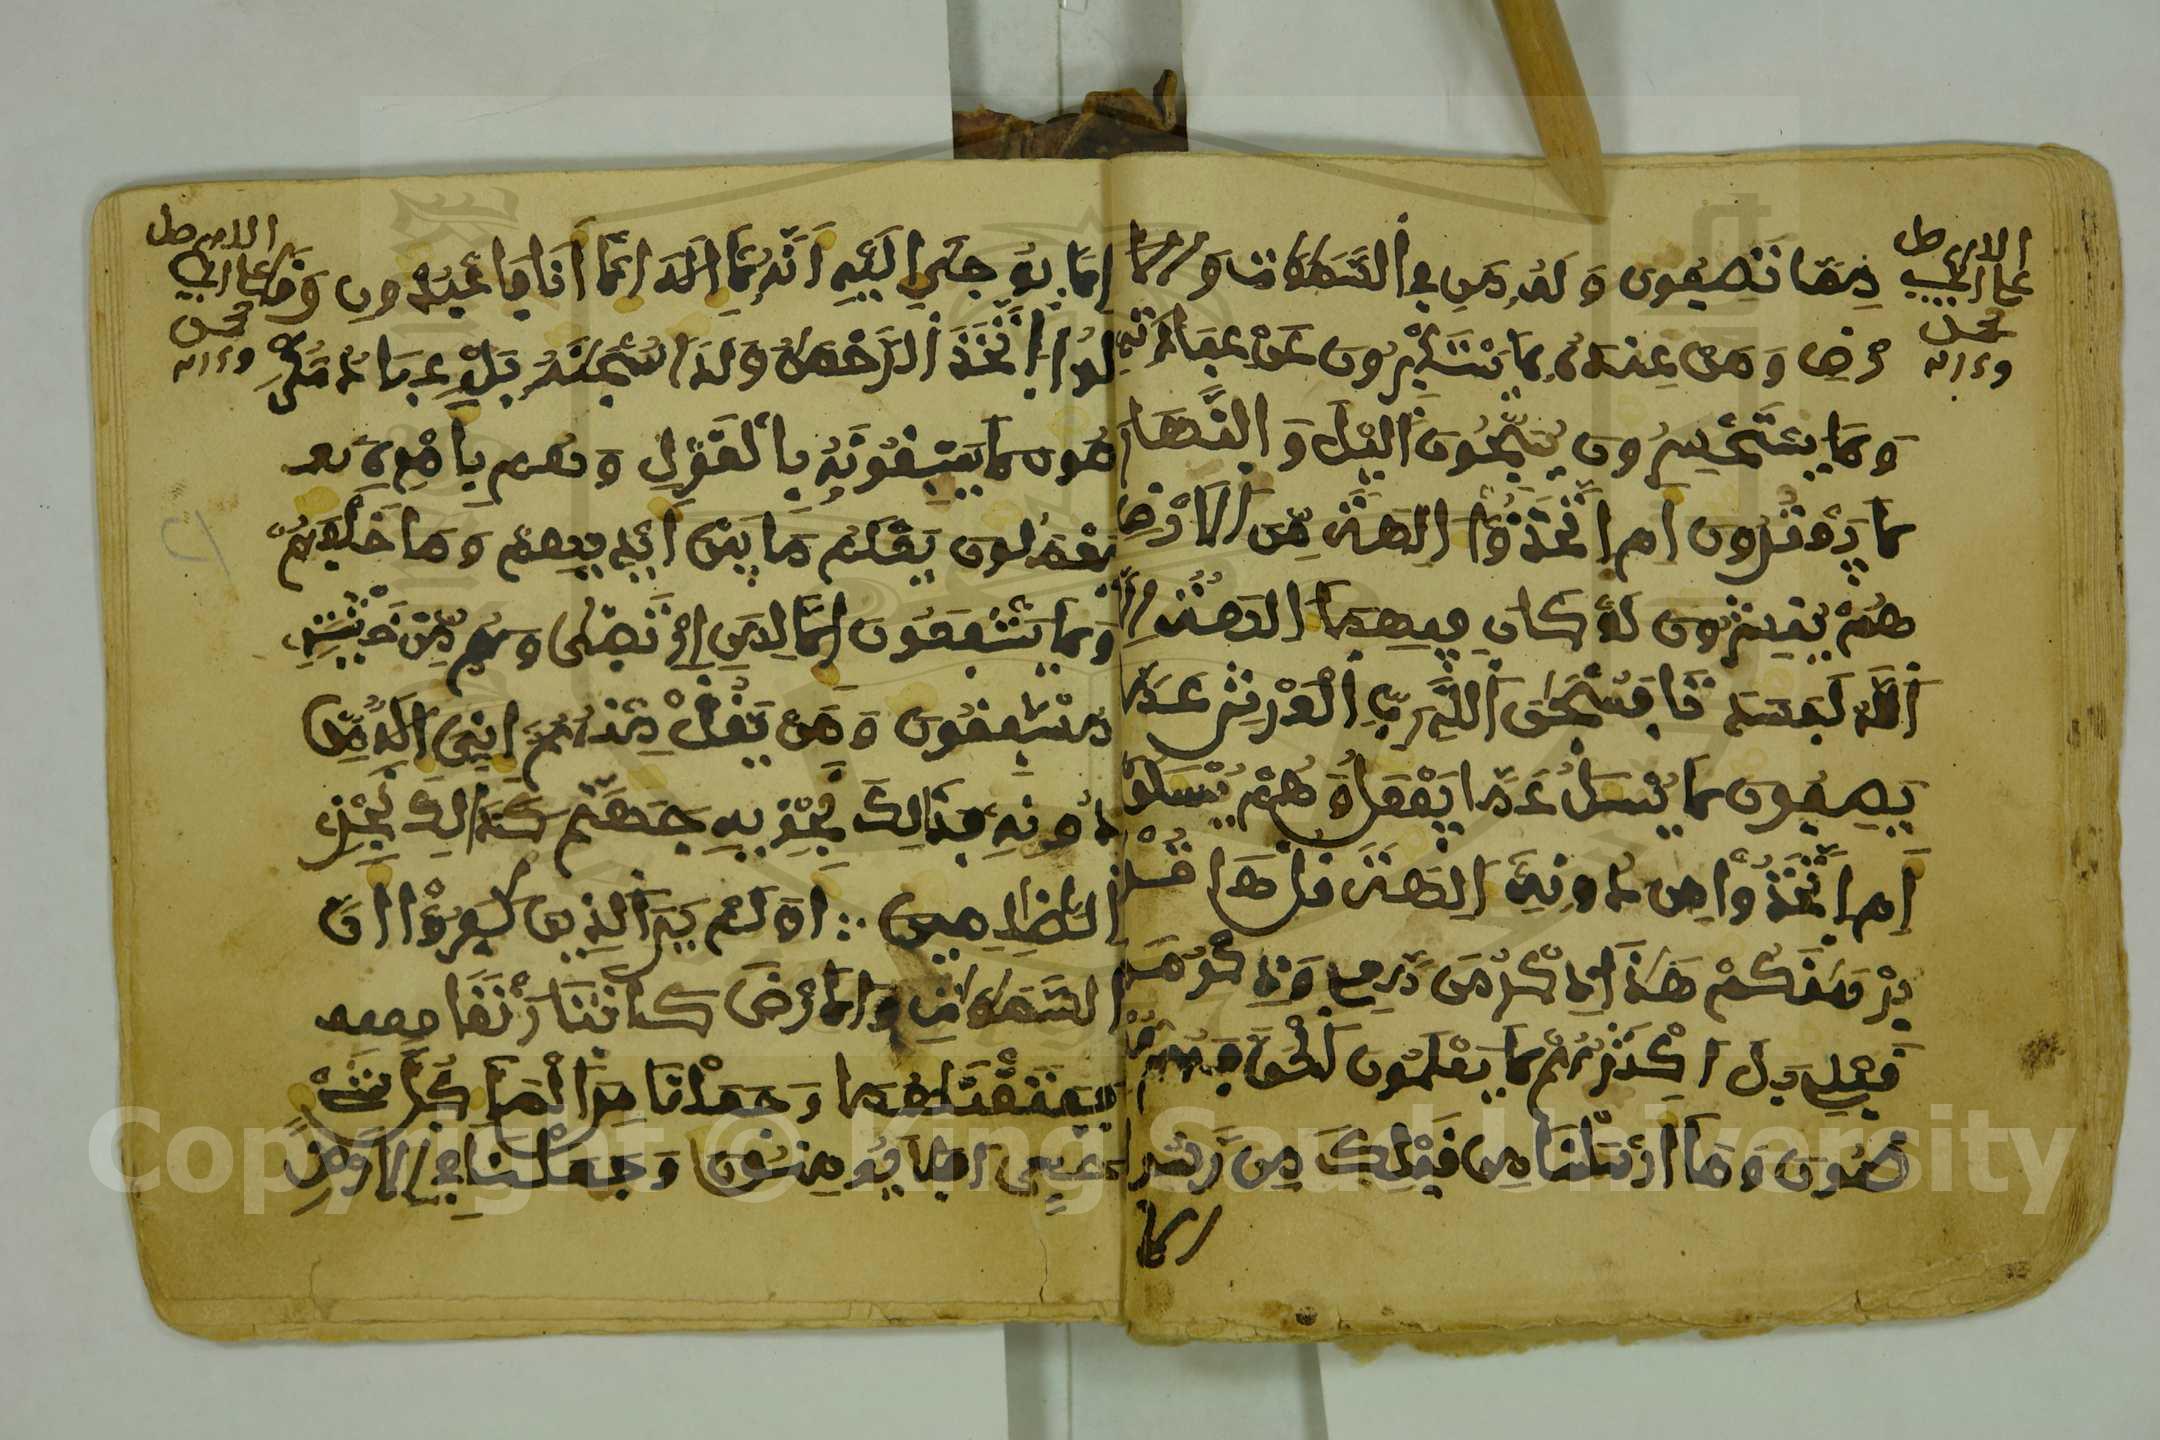 مما تصفون وله من في السموات والا
رض ومن عنده لا يستكبرون عن عبادته
ولا يستحسرون يسبحون اليل والنهار
لا يفترون ام اتخذوا الهة من الارض
هم ينشرون لو كان فيهما الهة الا
الله لفسدتا فسبحن الله رب العرش عما
يصفون لا يسئل عما يفعل وهم يسئلون
ام اتخذوا من دونه الهة قل هاتوا
برهنكم هذا ذكر من معي وذكر من
قبلي بل اكثرهم لا يعلمون الحق فهم معر
ضون وما ارسلنا من قبلك من رسول
الا
الا يوحى اليه انه لا اله الا انا فاعبدون وقا
لوا اتخذ الرحمن ولدا سبحنه بل عباد مكر
مون لا يسبقونه بالقول وهم بامره يعـ
يعملون يعلم ما بين ايديهم وما خلفهم
ولا يشفعون الا لمن ارتضى وهم من خشيته
مشفقون ومن يقل منهم اني اله من
دونه فذلك نجزيه جهنم كذلك نجزي
الظلمين ∴ اولم ير الذين كفروا ان
السموات والارض كانتا رتقا
ففتقنهما وجعلنا من الماء كل شيء
حي افلا يومنون وجعلنا في الارض
اللهم صل
على النبي
محمد
واله
اللهم صل
على النبي
محمد
واله
Copyright © King Saud University